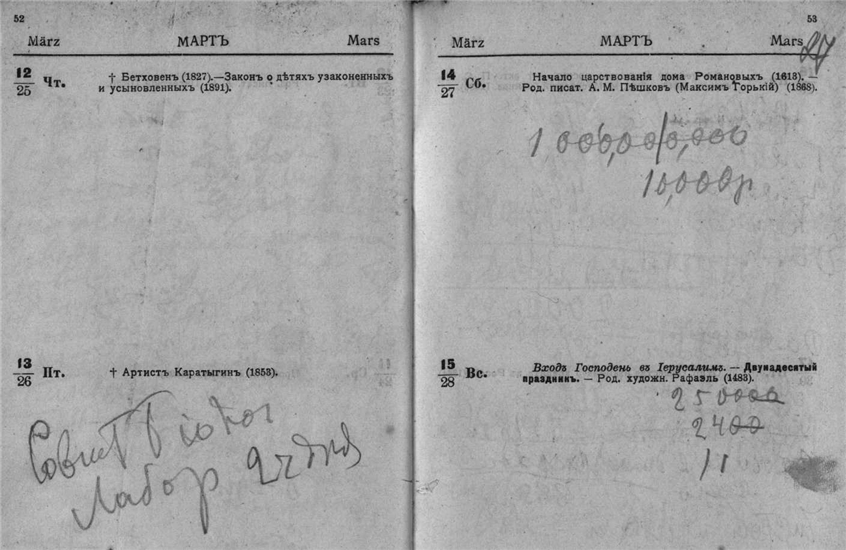 52
März МАРТЪ Mars
12/25 Чт. † Бетховенъ (1827).—Законъ о дѣтяхъ узаконенныхъ
и усыновленныхъ (1891).
13/26 Пт. † Артистъ Каратыгинъ (1853).
Лабор 2 ч дня
53
März МАРТЪ Mars 27
14/27 Сб. Начало царствованія дома Романовыхъ (1613). —
Род. писат. А. М. Пѣшковъ (Максимъ Горькій) (1868).
1 000,000,000
10,000р
15/28 Вс. Входъ Господень въ Іерусалимъ. — Двунадесятый
праздникъ. — Род. художн. Рафаэль (1483).
250000
2400
11